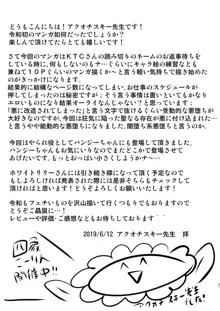 どうもこんにちは!アクオチスキー先生です!
令和初のマンガ如何だったでしょうか?
楽しんで頂けてたらとても嬉しいです!
さて今回のマンガはKTCさんの読み切りのネームのお返事待ちを
している時に、何もしないのも…ってキャラ絵の練習なども
兼ねて10Pぐらいのマンガ描くか~と言う軽い気持ちで描き始めた
のがきっかけになります。
結果的に結構なページ数になりました、お仕事のスケジュールが
押してしまったのは秘密ですが、そう言う事情は置いといてともかくなか
エロいものになり結果オーライなんじゃない?なんて思ってます;
「悪に改造されてしまう」とかって文字を聞けるぐらい受動的な悪堕ちが
大好きなのですが、今回は狂気に陥った聖なる存在が悪に付け込まれて…
と言う能動的な悪堕ちもやってみたかったんでした、闇堕ち系悪堕ちと言うのかね。
今回はやられ役としてパンジーちゃんにも登場して頂きました、
パンジーちゃんもお気にいりなのでまたどこかで登場させて
あげたいです。もっとおっぱい小さくしようかな…!
ホワイトリリーさんには引き続き碌になって頂く予定なので
もしよろしければ発表された際には是非そちらもチェックして
頂ければ嬉しいと思います!
令和もフェチいものを沢山描いて行くつもりでもおりますので
どうぞご贔屓に…!
レビューや評価・ご感想などもお待ちしております!
2019/6/12 アクオチスキー先生 拝
開催中!!
アクオチスキー先生